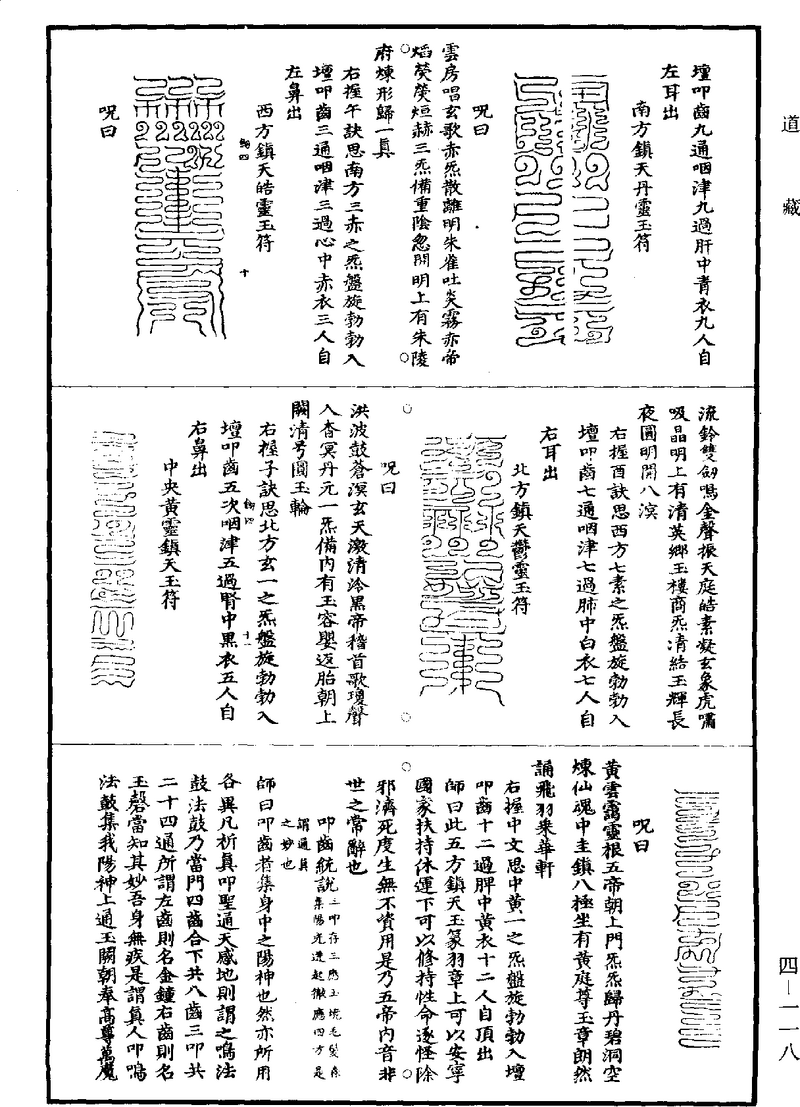 道藏
壇叩齒九通咽津九過肝中青衣九人自
左耳出
南方鎮天丹靈玉符
呪曰
雲房唱玄歌赤炁散離明朱雀吐炎霧赤帝
熖煢煢烜赫三炁備重陰忽開明上有朱陵
府煉形歸一真
右握午訣思南方三赤之炁盤旋勃勃入
壇叩齒三通咽津三過心中赤衣三人自
左鼻出
西方鎮天皓靈玉符
十
呪曰
流鈴雙劒鳴金聲振天庭皓素凝玄象虎嘯
吸晶明上有清英鄉玉樓商炁清結玉輝長
夜圓明開八溟
右握酉訣思西方七素之炁盤旋勃勃入
壇叩齒七通咽津七過肺中白衣七人自
右耳出
北方鎮天鬱靈玉符
呪曰
洪波鼓蒼溟玄天激清泠黒帝稽首歌瓊聲
入杳冥丹元一炁備内有玉容嬰返胎朝上
闕清号圓玉輪
右握子訣思北方玄一之炁盤旋勃勃入
十一
壇叩齒五次咽津五過腎中黒衣五人自
右鼻出
中央黄靈鎮天玉符
呪曰
黄雲靄靈根五帝朝上門炁炁歸丹碧洞空
煉仙魂中圭鎮八極坐有黄庭尊玉章朗然
誦飛羽乗華軒
右握中文思中黄一之炁盤旋勃勃入壇
叩齒十二過脾中黄衣十二人自頂出
師曰此五方鎮天玉篆羽章上可以安寧
國家扶持休運下可以修持性命逐怪除
邪濟死度生無不資用是乃五帝内音非
世之常辭也
叩齒統說
謂通真
之妙也
師曰叩齒者集身中之陽神也然亦所用
各異凡祈真叩聖通天感地則謂之鳴法
鼓法鼓乃當門四齒合下共八齒三叩共
二十四通所謂左齒則名金鐘右齒則名
玉磬當知其妙吾身無疾是謂真人叩鳴
法鼓集我陽神上通玉闕朝奉高尊萬魔
四－一一八